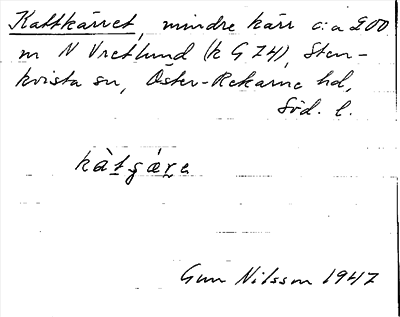 Kattkärret, mindre kärr c:a 200
m N Vretlund (k G 74), Sten-
kvista sn, Öster-Rekarne hd,
Söd. l.
kàtǥǽra
Gun Nilsson 1947